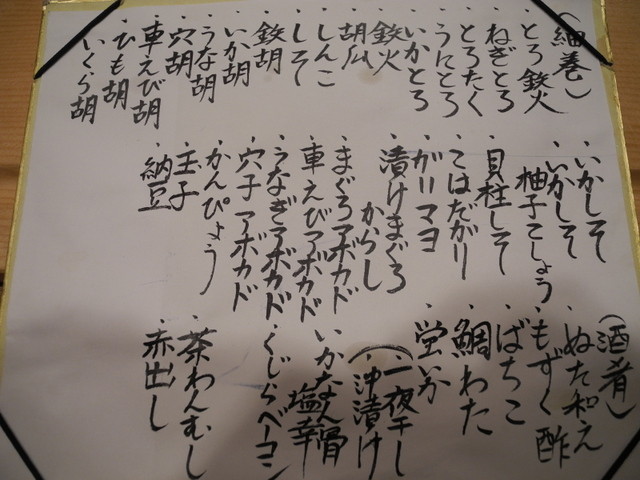 (細巻)
・とろ鉄火
・ねぎとろ
・とろたく
・うにとろ
・いかとろ
・鉄火
・胡瓜
・しんこ
・しそ
・鉄胡
・いか胡
・うな胡
・穴胡
・車えび胡
・ひも胡
・いくら胡
・いかしそ
・いかしそ
柚子こしょう
・貝柱しそ
・こはだがり
・ガリマヨ
・漬けまぐろ
からし
・まぐろアボカド
・車えびアボカド
・うなぎアボカド
・穴子アボカド
・かんぴょう
・玉子
・納豆
(酒肴)
・ぬた和え
・もずく酢
・ばちこ
・鯛わた
・蛍いか
(・一夜干し
・沖漬け
・いかなん骨
塩辛
・くじらベーコン
・茶わんむし
・赤出し